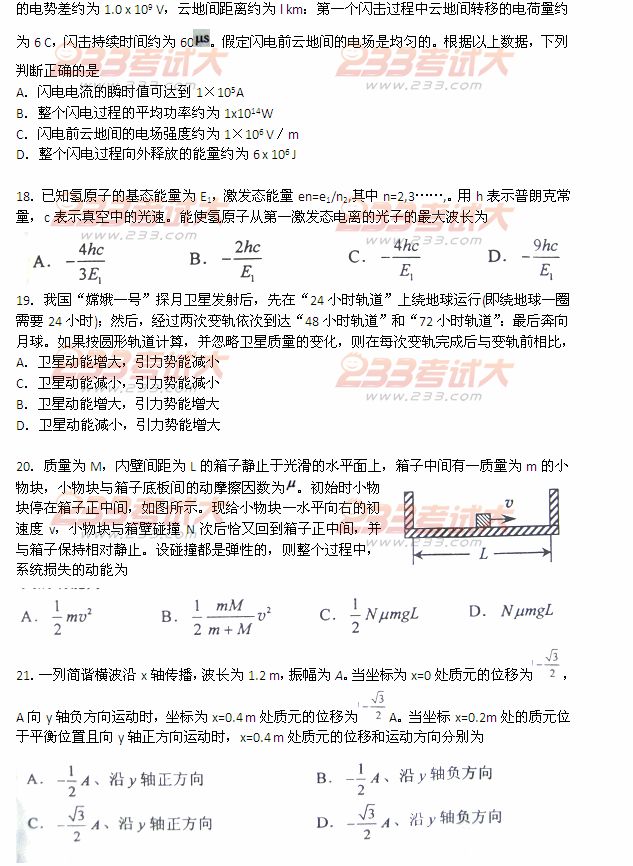 的电势差约为 1.0 x 10⁹ V，云地间距离约为 l km：第一个闪击过程中云地间转移的电荷量约
为 6 C，闪击持续时间约为 60μs。假定闪电前云地间的电场是均匀的。根据以上数据，下列
判断正确的是
A．闪电电流的瞬时值可达到 1×10⁵A
B．整个闪电过程的平均功率约为 1x10¹⁴W
C．闪电前云地间的电场强度约为 1×10⁶V／m
D．整个闪电过程向外释放的能量约为 6 x 10⁶J
18．已知氢原子的基态能量为 E₁，激发态能量 en=e₁/n₂,其中 n=2,3……,。用 h 表示普朗克常
量，c 表示真空中的光速。能使氢原子从第一激发态电离的光子的最大波长为
A. -4hc/3E₁ B. -2hc/E₁ C. -4hc/E₁ D. -9hc/E₁
19．我国“嫦娥一号”探月卫星发射后，先在“24 小时轨道”上绕地球运行(即绕地球一圈
需要 24 小时)；然后，经过两次变轨依次到达“48 小时轨道”和“72 小时轨道”：最后奔向
月球。如果按圆形轨道计算，并忽略卫星质量的变化，则在每次变轨完成后与变轨前相比，
A．卫星动能增大，引力势能减小
C．卫星动能减小，引力势能减小
B．卫星动能增大，引力势能增大
D．卫星动能减小，引力势能增大
20．质量为 M，内壁间距为 L 的箱子静止于光滑的水平面上，箱子中间有一质量为 m 的小
物块，小物块与箱子底板间的动摩擦因数为μ。初始时小物
块停在箱子正中间，如图所示。现给小物块一水平向右的初
速度 v，小物块与箱壁碰撞 N 次后恰又回到箱子正中间，并
与箱子保持相对静止。设碰撞都是弹性的，则整个过程中，
系统损失的动能为
v
L
A. 1/2 mv² B. 1/2 mM/(m+M) v² C. 1/2 NμmgL D. NμmgL
21. 一列简谐横波沿 x 轴传播，波长为 1.2 m，振幅为 A。当坐标为 x=0 处质元的位移为 -√3/2 ，
A 向 y 轴负方向运动时，坐标为 x=0.4 m 处质元的位移为 -√3/2 A。当坐标 x=0.2m 处的质元位
于平衡位置且向 y 轴正方向运动时，x=0.4 m 处质元的位移和运动方向分别为
A. -1/2 A、沿 y 轴正方向 B. -1/2 A、沿 y 轴负方向
C. -√3/2 A、沿 y 轴正方向 D. -√3/2 A、沿 y 轴负方向
233考试大
www.233.com